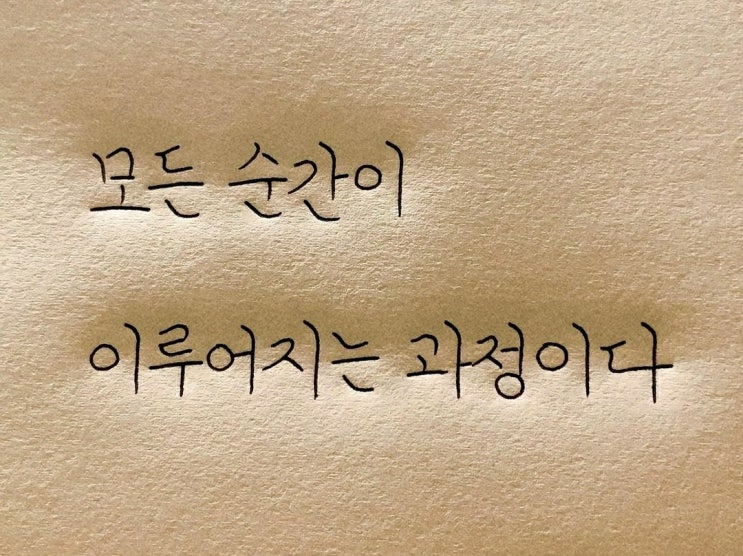 모든 순간이
이루어지는 과정이다